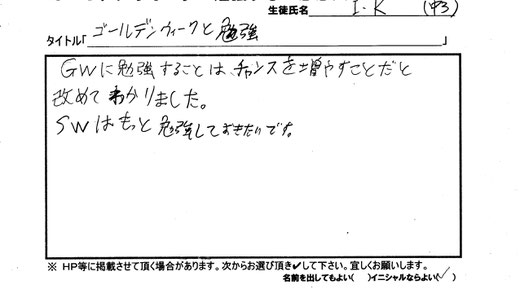 生徒氏名 I.K (中3)
タイトル「ゴールデンウィークと勉強」
GWに勉強することは、チャンスを増やすことだと
改めてわかりました。
SWはもっと勉強しておきたいです。
※ HP等に掲載させて頂く場合があります。次からお選び頂き✓して下さい。宜しくお願いします。
名前を出してもよい( )イニシャルならよい(✓)